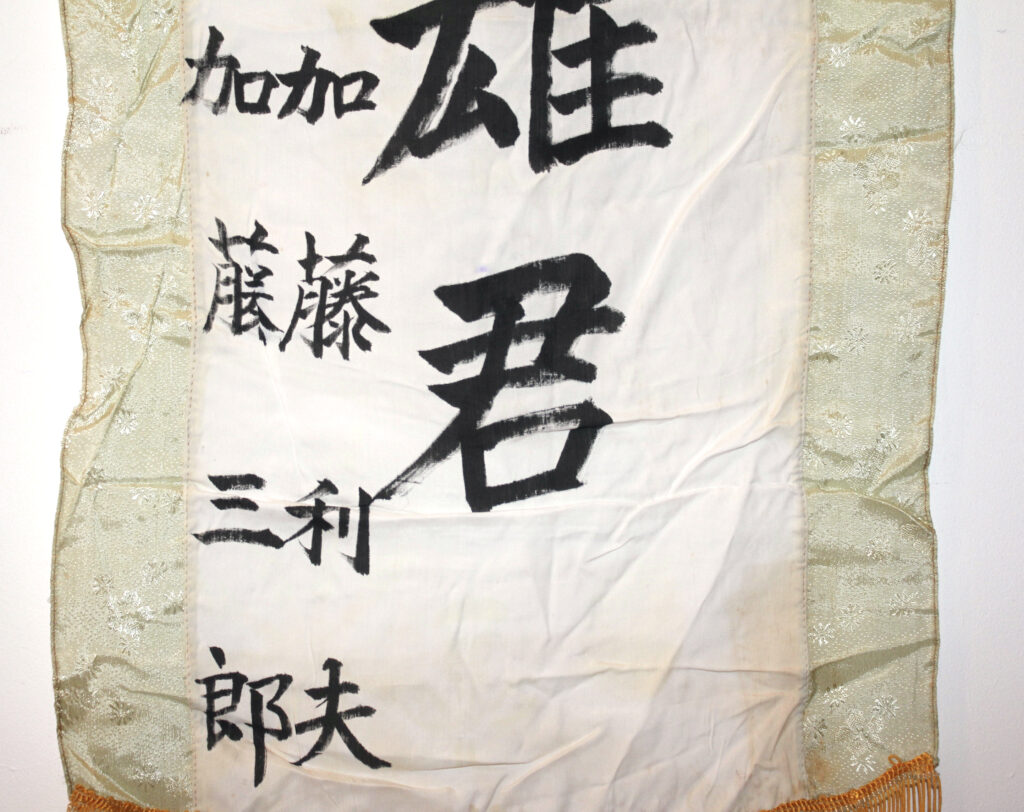 雄君
加藤利夫
加藤三郎